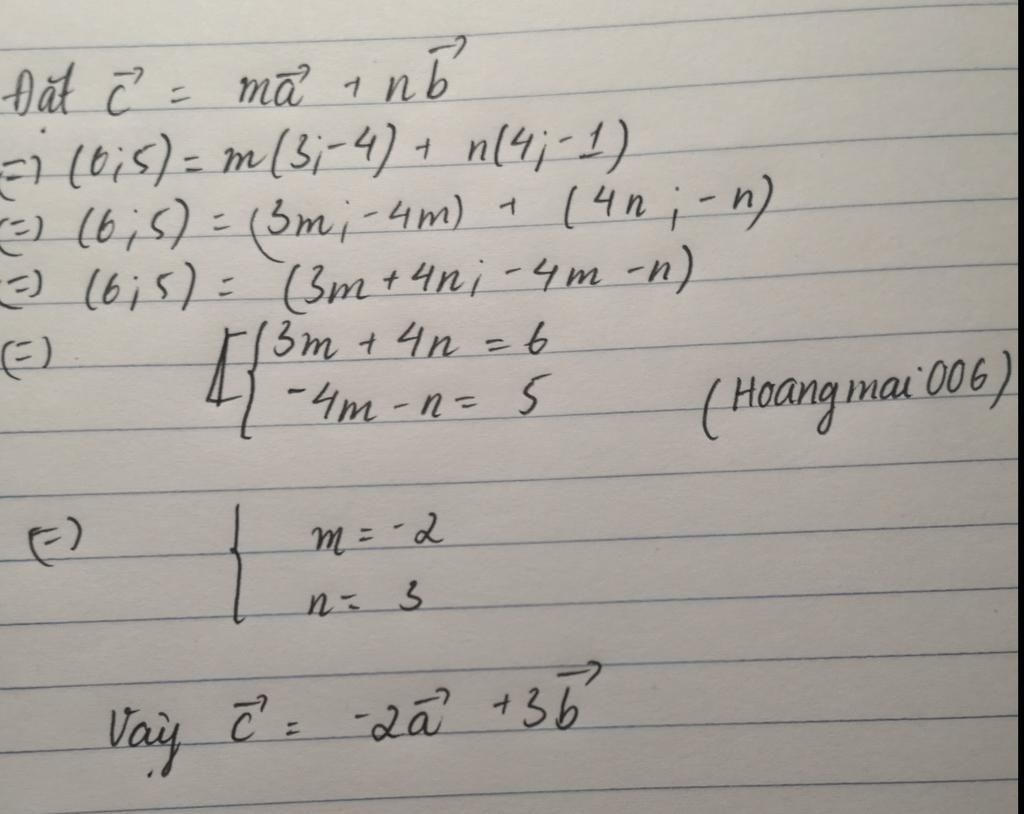 Đặt c⃗ = ma⃗ + nb⃗
(=) (6;5) = m(3;-4) + n(4;-1)
(=) (6;5) = (3m;-4m) + (4n;-n)
(=) (6;5) = (3m+4n;-4m-n)
(=) { 3m + 4n = 6
-4m - n = 5 (Hoangmai006)
(=) { m = -2
n = 3
Vậy c⃗ = -2a⃗ +3b⃗